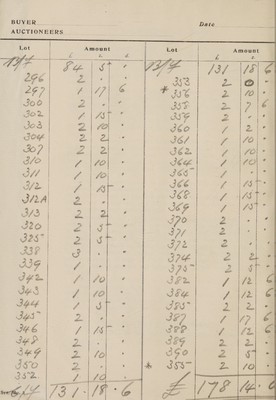 BUYER Date
AUCTIONEERS
Lot Amount Lot Amount
£ s d £ s d
B/f 84 5 . B/f 131 18 6
296 2 . . 353 2 0 .
297 1 17 6 * 356 2 10 .
300 2 . . 358 2 7 6
302 1 15 . 359 2 . .
303 2 10 . 360 1 2 .
304 2 2 . 361 1 10 .
307 2 2 . 362 1 10 .
310 1 10 . 364 1 10 .
311 1 10 . 365 1 . .
312 1 15 . 366 1 15 .
312A 2 . . 368 1 15 .
313 2 2 . 369 1 15 .
320 2 5 . 370 2 . .
325 2 5 . 371 2 . .
338 3 . . 372 2 . .
339 1 . . 374 2 2 .
342 1 10 . 375 2 5 .
343 1 10 . 382 1 12 6
344 1 5 . 384 1 12 6
345 2 . . 385 2 2 .
346 1 15 . 387 1 17 6
348 2 . . 388 1 12 6
349 2 10 . 390 2 5 .
350 2 . . * 355 2 10 .
352 1 10 .
131 . 18 . 6 £ 178 14 . 0